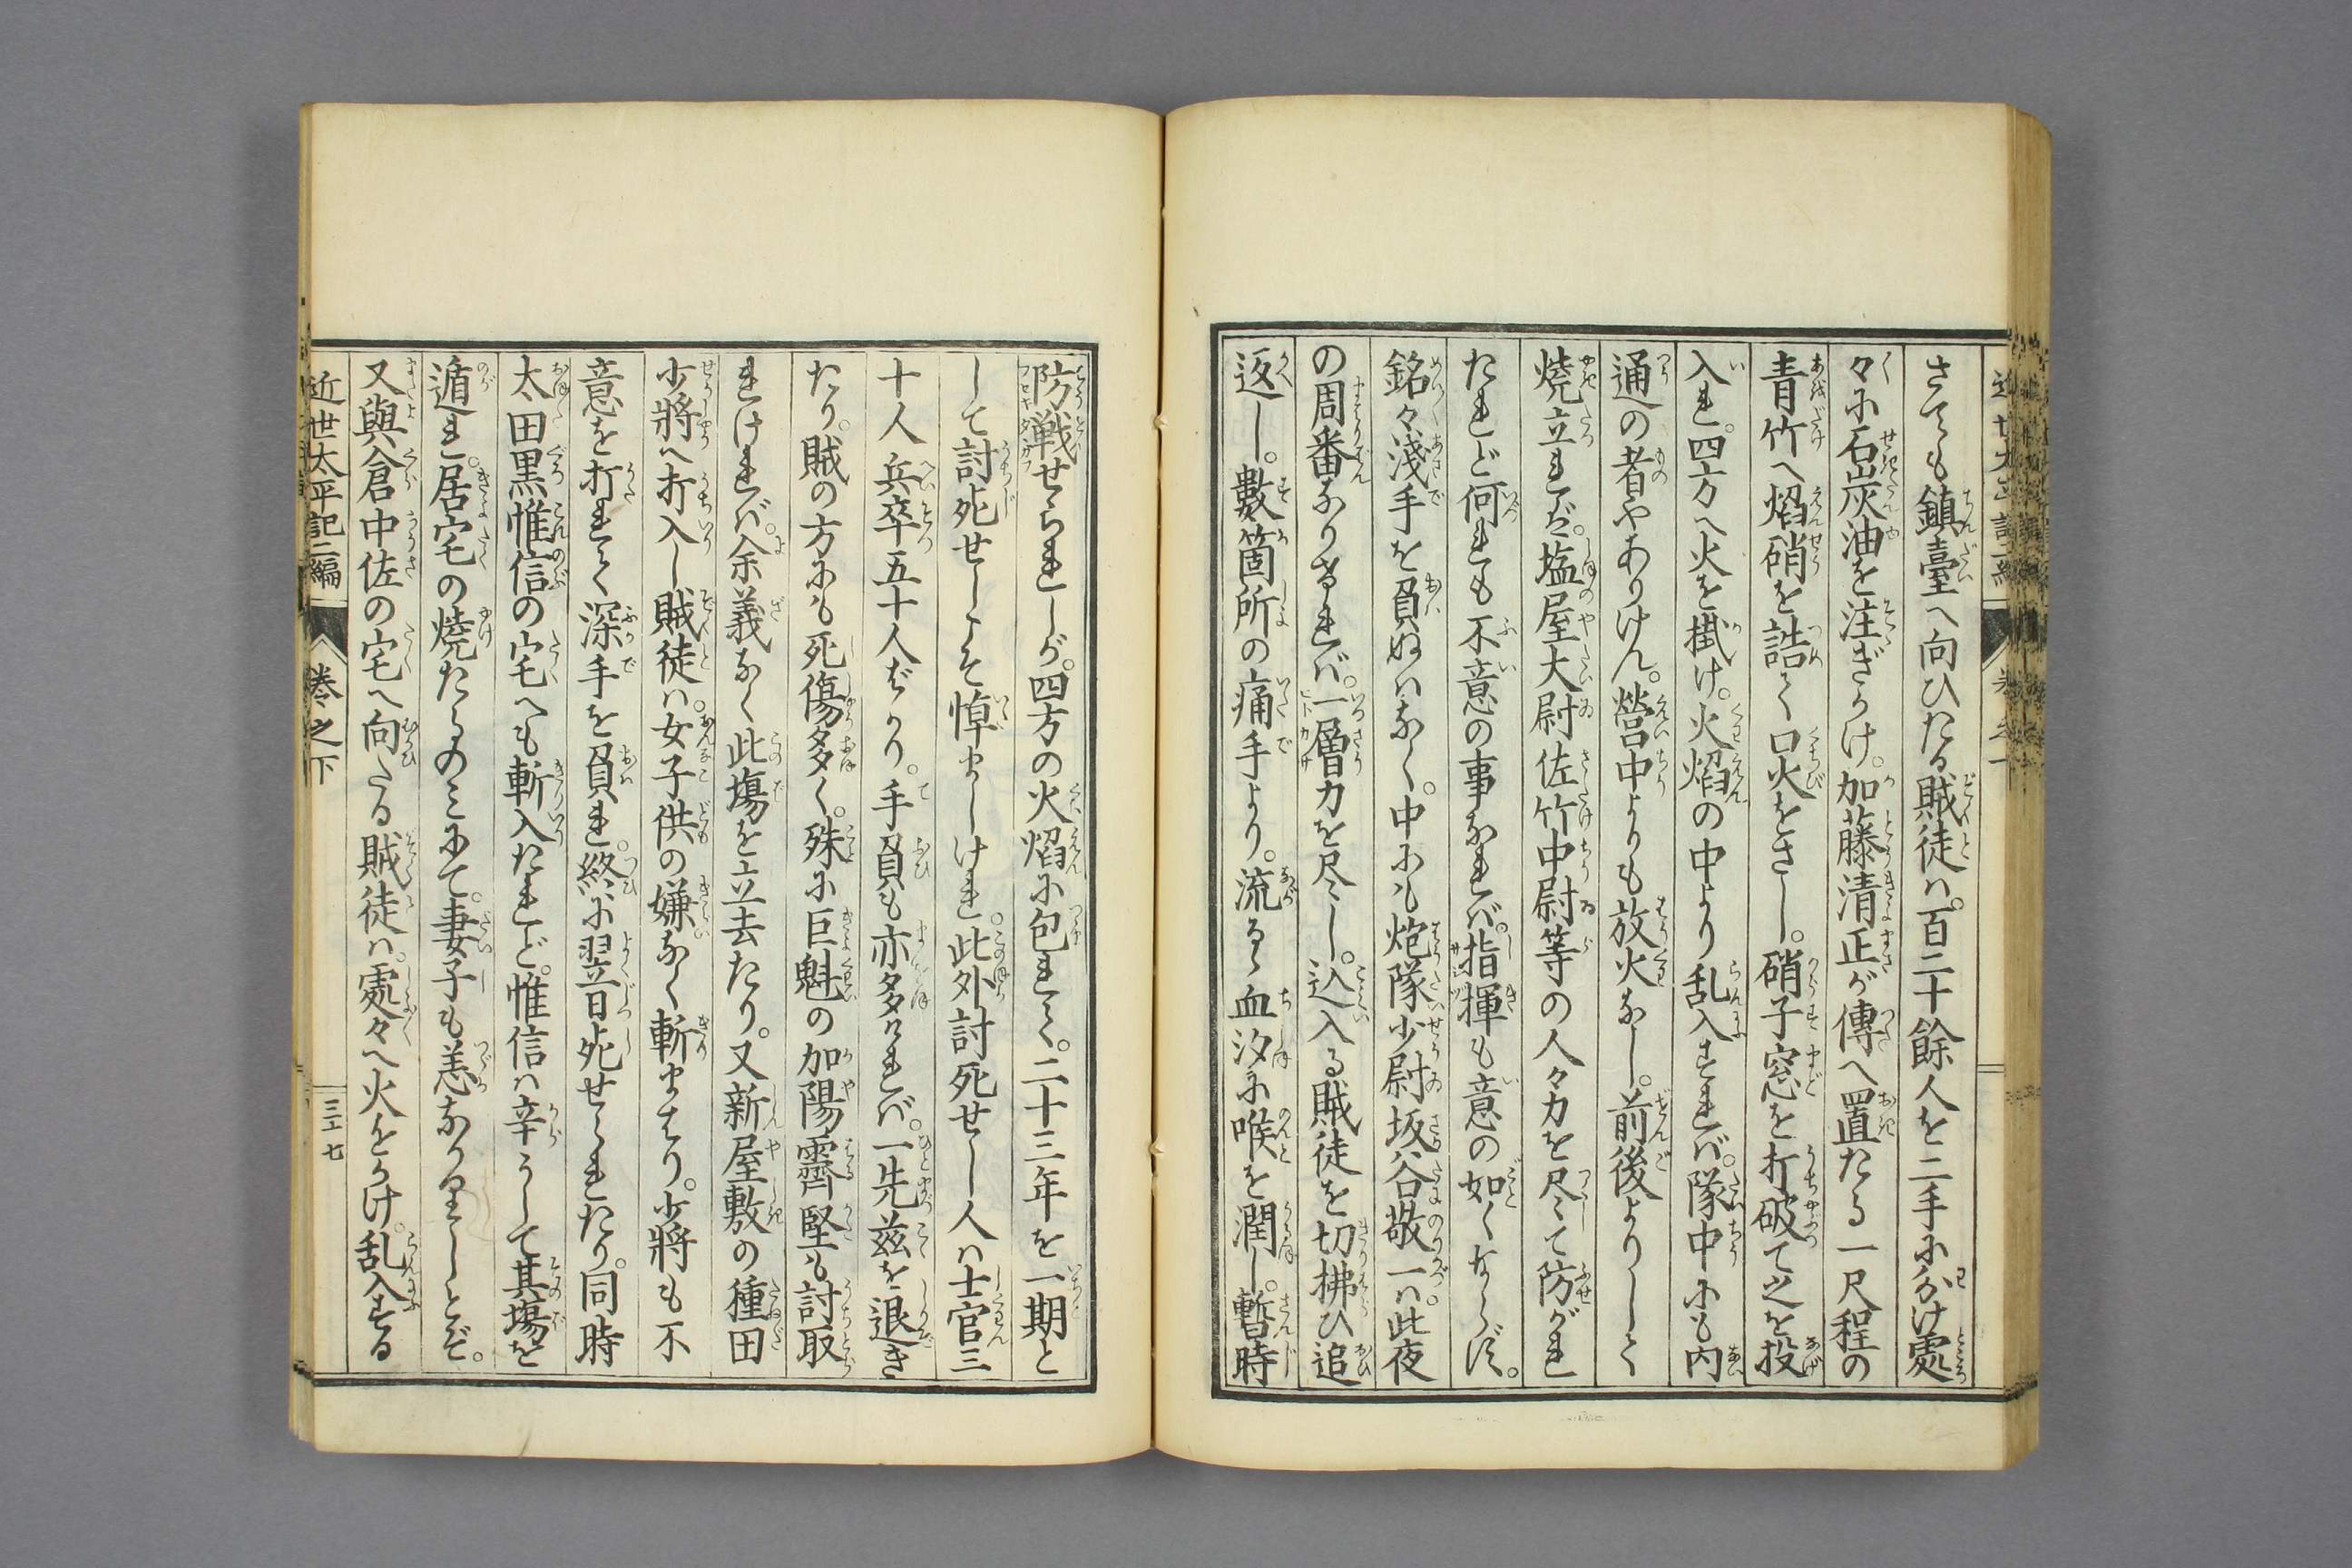 さても鎮臺へ向ひたる賊徒ハ。百二十餘人を二手に分け處
々に石炭油を注ぎかけ。加藤清正が傳へ置たる一尺程の
青竹へ焔硝を詰て口火をさし。硝子窓を打破て之を投
入れ。四方へ火を掛け。火焔の中より乱入すれバ。隊中にも内
通の者やありけん。營中よりも放火なし。前後よりして
燒立れバ。塩屋大尉佐竹中尉等の人々力を尽して防がれ
たれど何れも不意の事なれバ。指揮も意の如くならず。
銘々淺手を負ぬハなく。中にも炮隊少尉坂谷敬一ハ。此夜
の周番なりけれバ。一層力を尽し。込入る賊徒を切拂ひ追
返し。數箇所の痛手より。流るゝ血汐に喉を潤し。暫時
防戦せられしが。四方の火焔に包れて。二十三年を一期と
して討死せしこそ悼ましけれ。此外討死せし人ハ士官三
十人兵卒五十人ばかり。手負も亦多けれバ。一先茲を退き
たり。賊の方にも死傷多く。殊に巨魁の加陽霽堅も討取
れけれバ。余義なく此塲を立去たり。又新屋敷の種田
少將へ打入し賊徒ハ。女子供の嫌なく斬まはり。少將も不
意を打れて深手を負れ。終に翌日死せられたり。同時
太田黒惟信の宅へも斬入たれど。惟信ハ辛うして其塲を
遁れ。居宅の燒たるのミにて。妻子も恙なかりしとぞ。
又與倉中佐の宅へ向たる賊徒ハ。處々へ火をかけ。乱入する
近世太平記二編 巻之下 三十七